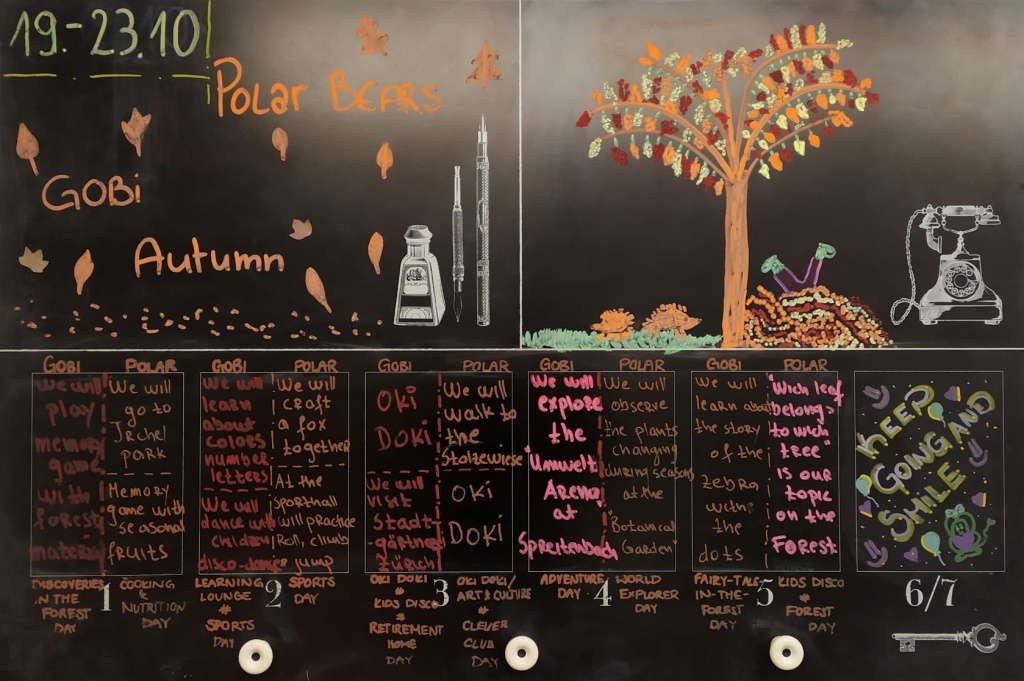 19.-23.10
POLAR BEARS
GOBi
Autumn
GOBI
We will
play
memory
game
with
forest
material
DISCOVERIES
IN THE
FOREST
DAY
POLAR
We will
go to
park
Memory
game with
seasonal
fruits
COOKING
&
NUTRITION
DAY
1
GOBI
We will
learn
about
colors
number
letters
We will
dance with
children
disco-dance
LEARNING
LOUNGE
*
SPORTS
DAY
POLAR
We will
craft
a fox
together
At the
sporthall
will practice
roll, climb
jump
SPORTS
DAY
2
GOBI
OKi
DOKi
We will
visit
Stadt-
gärtnerei
Zürich
OKI DOKI
*
KIDS DISCO
*
RETIREMENT
HOME
DAY
POLAR
We will
walk to
the
Stoltewiese
OKi
DOKi
OKI DOKI/
ART & CULTURE
*
CLEVER
CLUB
DAY
3
GOBI
We will
explore
the
"Umwelt
Arena
at
Spreitenbach
ADVENTURE
DAY
POLAR
We will
observe
the plants
changing
during seasons
at the
"Botanical
Garden"
WORLD
EXPLORER
DAY
4
GOBI
We will
learn about
the story
of the
zebra
with
the
dots
FAIRY-TALE-
IN-THE-
FOREST
DAY
POLAR
"Wich leaf
belongs
to wich
tree"
is our
topic
on the
FOREST
KIDS DISCO
*
FOREST
DAY
5
KEEP
GOING AND
SMILE
6/7